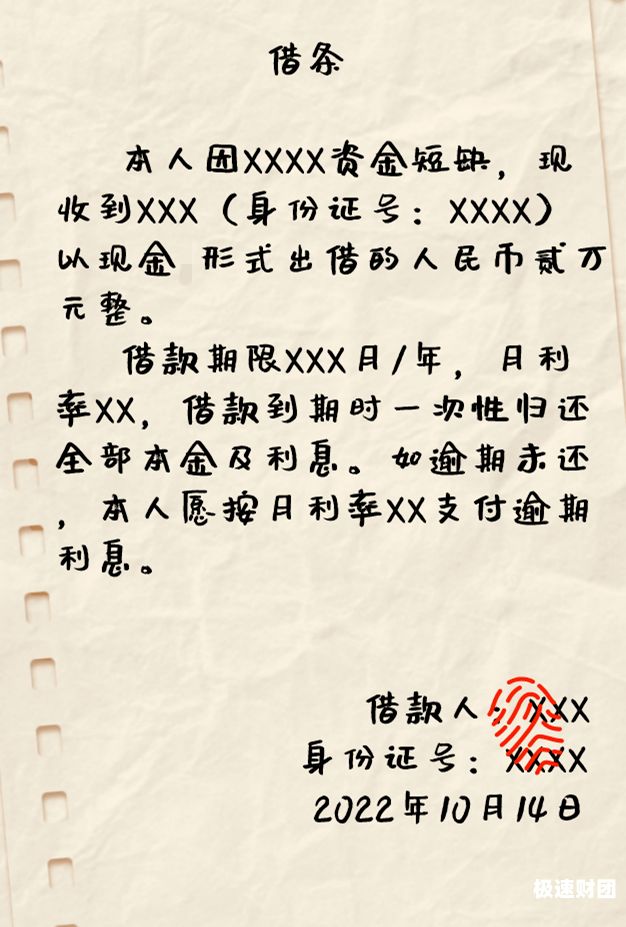 借条
本人因XXXX资金短缺，现
收到XXX（身份证号：XXXX）
以现金 形式出借的人民币贰万
元整。
借款期限XXX月/年，月利
率XX，借款到期时一次性归还
全部本金及利息。如逾期未还
，本人愿按月利率XX支付逾期
利息。
借款人：XXX
身份证号：XXXX
2022年10月14日
极速财团